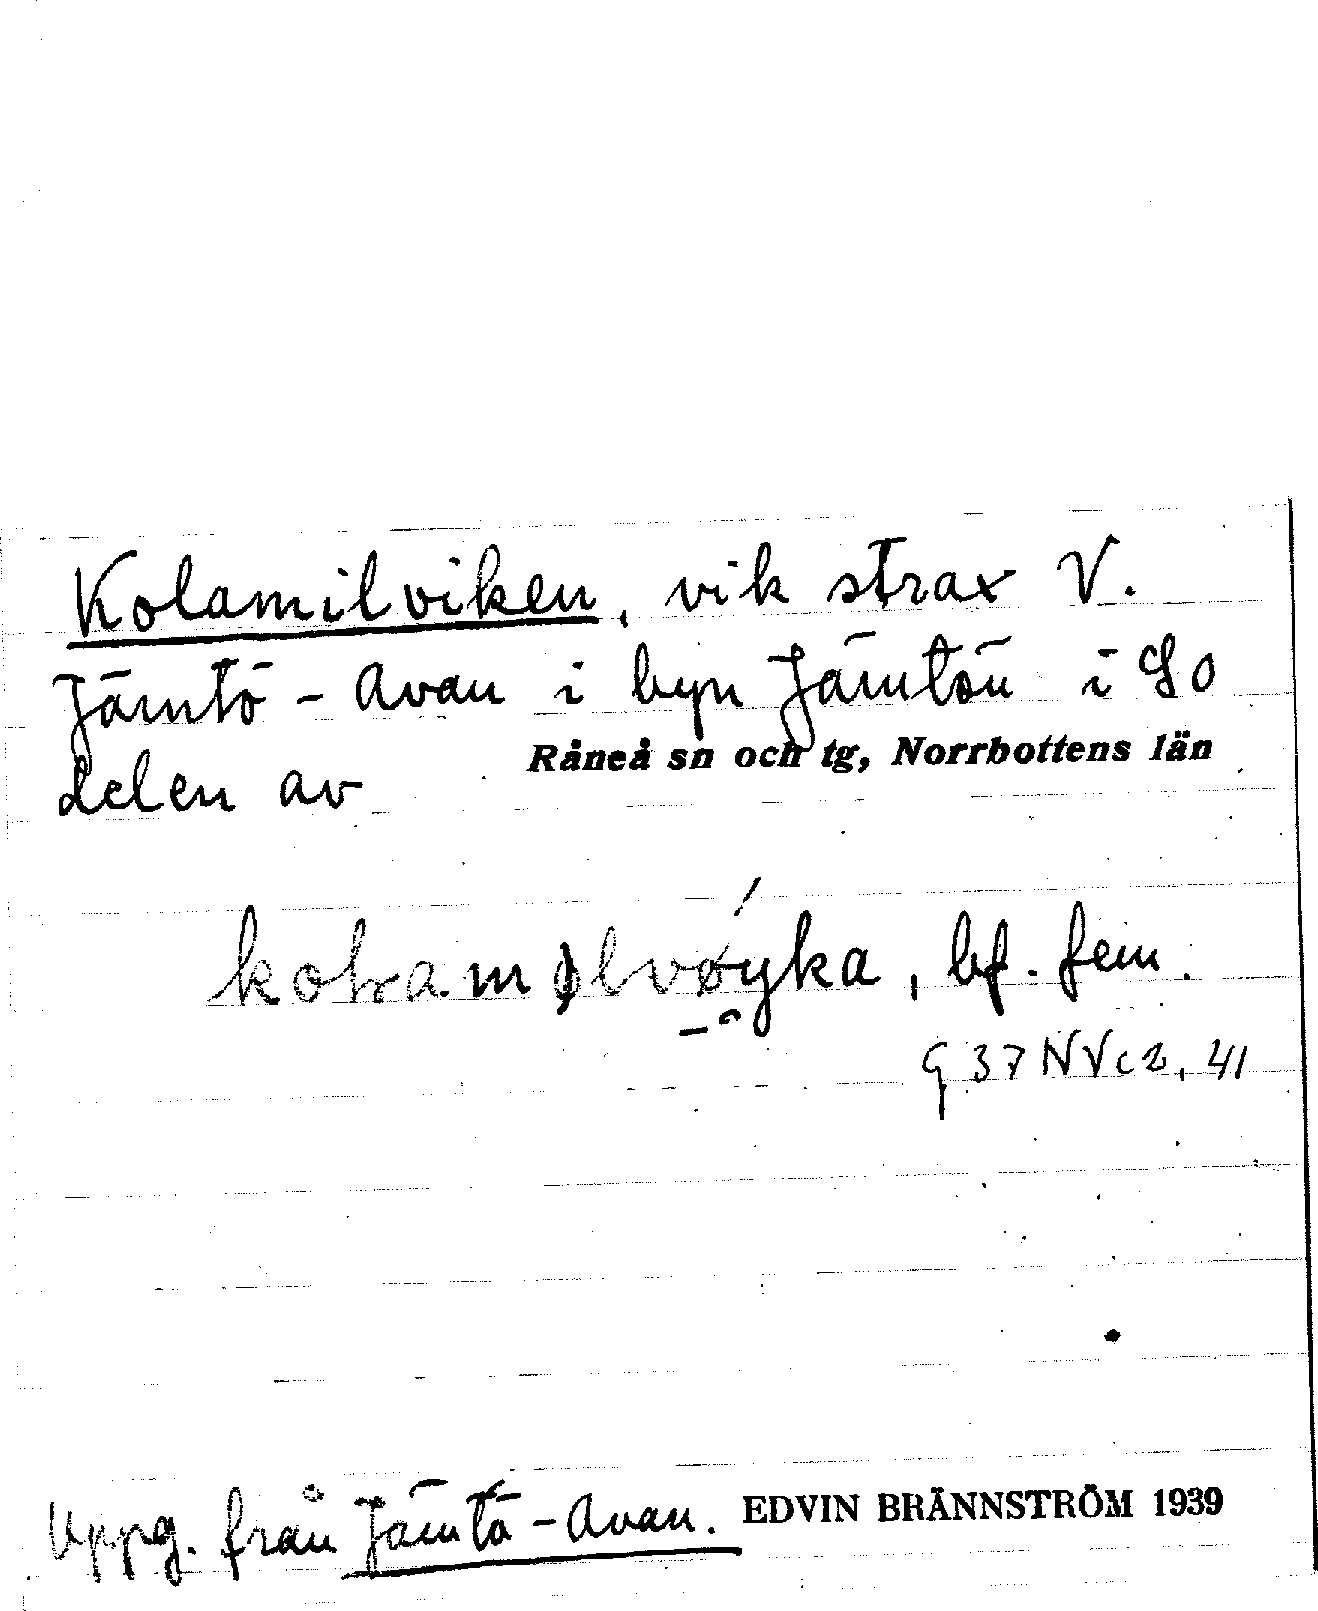 Kolamilviken, vik strax V.
Jämtö-Avan i byn Jämtön i SO
delen av Råneå sn och tg, Norrbottens län
bf. fem.
g 37 NV c 2, 41
Uppg. från Jämtö-Avan. EDVIN BRÄNNSTRÖM 1939